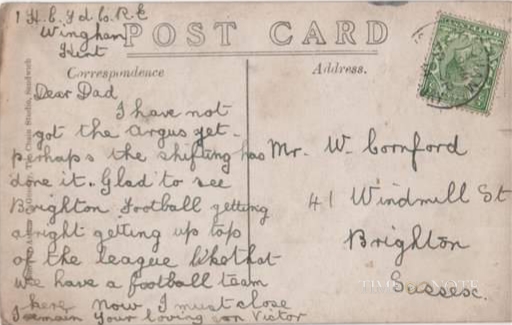 1 H.C. Fd Co. R.E
Wingham
Kent
POST CARD
Correspondence
Address.
Dear Dad
I have not
got the Argus yet -
perhaps the shifting has
done it. Glad to see
Brighton Football getting
alright getting up top
of the league like that
we have a football team
here now I must close
I remain Your loving son Victor
Mr. W. Cornford
41 Windmill St
Brighton
Sussex.
Studio, Sandwich
WINGHAM
TIME NOTE